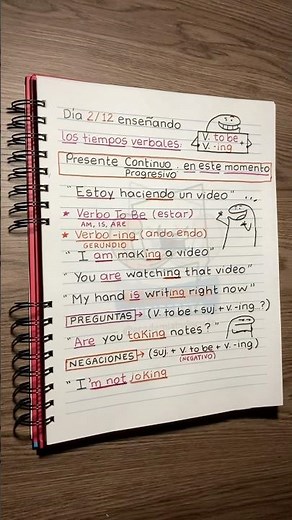 Día 2/12 enseñando
los tiempos verbales.
V. to be
V. -ing +
Presente Continuo. en este momento
Progresivo
"Estoy haciendo un video"
★ Verbo To Be (estar)
AM, IS, ARE
★ Verbo -ing (ando endo)
GERUNDIO
"I am making a video"
"You are watching that video"
"My hand is writing right now"
PREGUNTAS → (V. to be + suj + V. -ing ...?)
"Are you taking notes?"
NEGACIONES → (suj + V. to be + V. -ing)
(NEGATIVO)
"I'm not joking